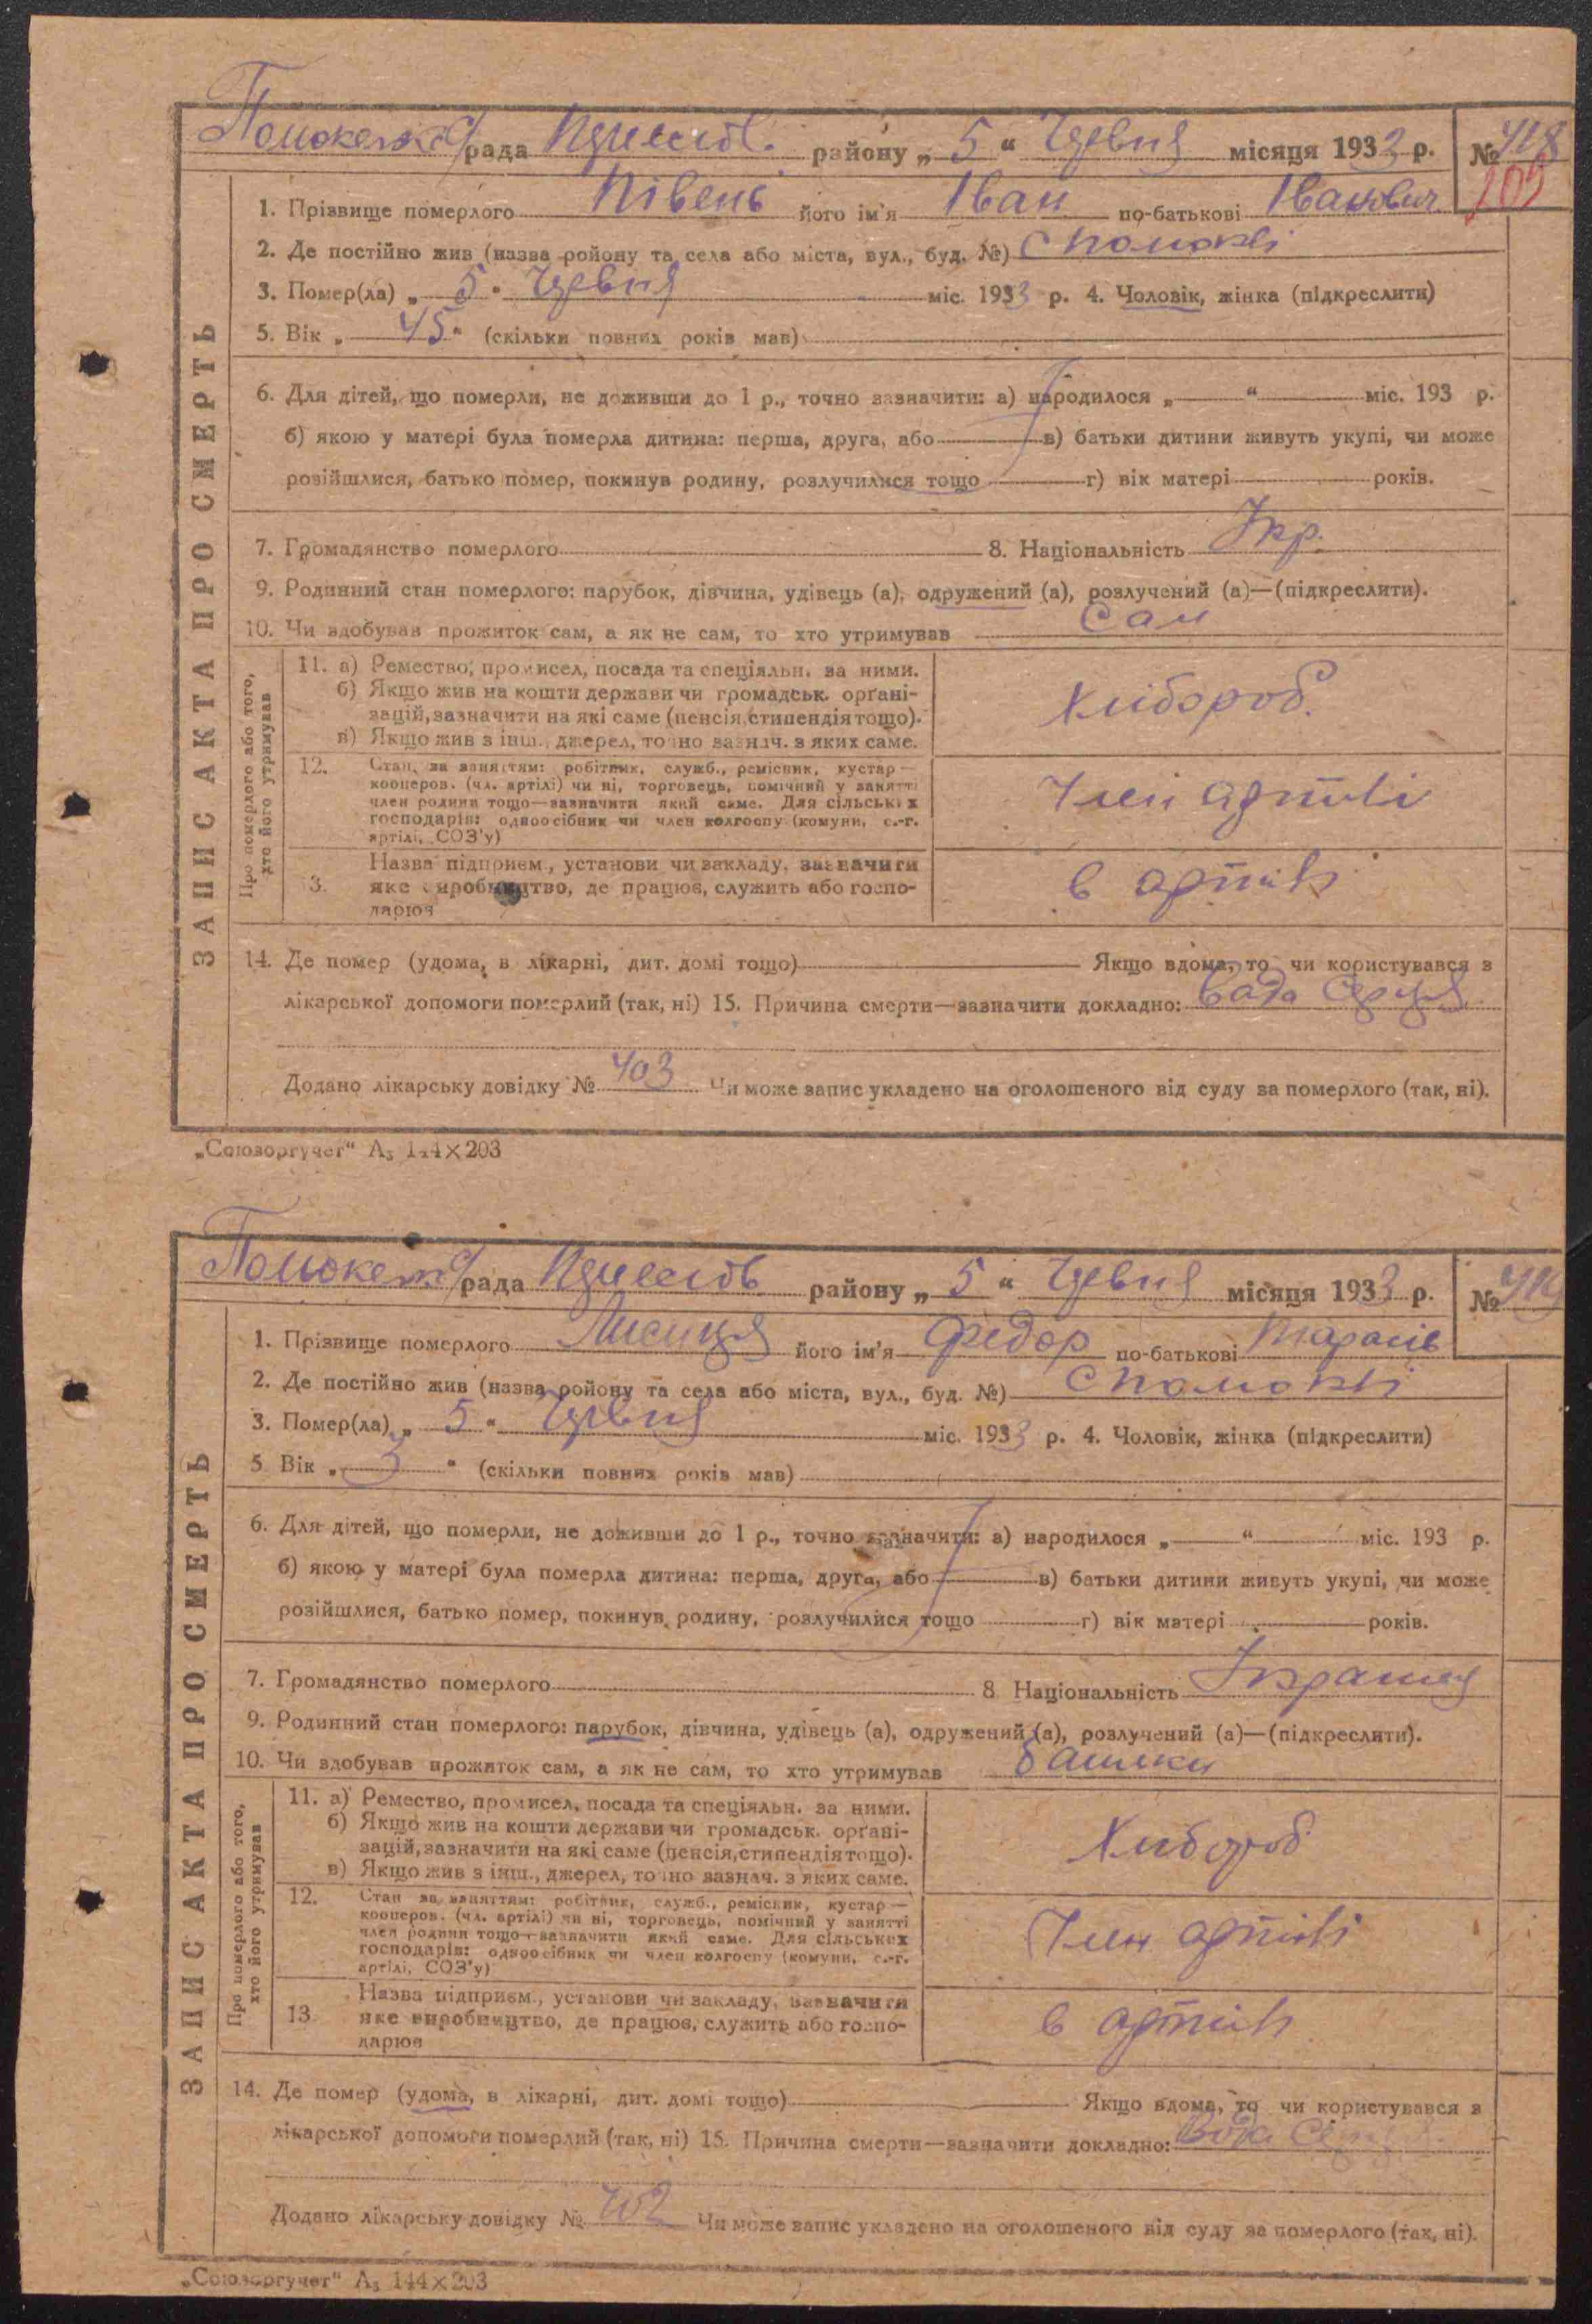 рада району „ 5 “ Червня місяця 1933 р. № 418
1. Прізвище померлого Півень його ім'я Іван по-батькові Іванович
2. Де постійно жив (назва ройону та села або міста, вул., буд. №) с
3. Помер(ла) „ 5 “ Червня міс. 1933 р. 4. Чоловік, жінка (підкреслити)
5. Вік „ 45 “ (скільки повних років мав)
6. Для дітей, що померли, не доживши до 1 р., точно зазначити: а) народилося „ “ міс. 193 р.
б) якою у матері була померла дитина: перша, друга, або в) батьки дитини живуть укупі, чи може
розійшлися, батько помер, покинув родину, розлучилися тощо г) вік матері років.
7. Громадянство померлого 8. Національність Укр.
9. Родинний стан померлого: парубок, дівчина, удівець (а), одружений (а), розлучений (а)—(підкреслити).
10. Чи здобував прожиток сам, а як не сам, то хто утримував Сам
ЗАПИС АКТА ПРО СМЕРТЬ
Про померлого або того,
хто його утримував
11. а) Ремество, промисел, посада та спеціяльн. за ними.
б) Якщо жив на кошти держави чи громадськ. орґані-
зацій, зазначити на які саме (пенсія, стипендія тощо).
в) Якщо жив з інш., джерел, точно зазнач. з яких саме.
Хлібороб.
12. Стан за заняттям: робітник, служб., ремісник, кустар—
кооперов. (чл. артілі) чи ні, торговець, помічний у занятті
член родини тощо—зазначити який саме. Для сільських
господарів: одноосібник чи член колгоспу (комуни, с.-г.
артілі, СОЗ'у)
Член артілі
3. Назва підприєм., установи чи закладу, зазначити
яке виробництво, де працює, служить або госпо-
дарює
в артілі
14. Де помер (удома, в лікарні, дит. домі тощо) Якщо вдома, то чи користувався з
лікарської допомоги померлий (так, ні) 15. Причина смерти—зазначити докладно: Вада Серця
Додано лікарську довідку № 403 Чи може запис укладено на оголошеного від суду за померлого (так, ні).
„Союзоргучет“ А₅ 144×203
рада району „ 5 “ Червня місяця 1933 р. №
1. Прізвище померлого Лисиця його ім'я Федор по-батькові Тарасів
2. Де постійно жив (назва ройону та села або міста, вул., буд. №) с
3. Помер(ла) „ 5 “ Червня міс. 1933 р. 4. Чоловік, жінка (підкреслити)
5 Вік „ 3 “ (скільки повних років мав)
6. Для дітей, що померли, не доживши до 1 р., точно зазначити: а) народилося „ “ міс. 193 р.
б) якою у матері була померла дитина: перша, друга, або в) батьки дитини живуть укупі, чи може
розійшлися, батько помер, покинув родину, розлучилися тощо г) вік матері років.
7. Громадянство померлого 8 Національність
9. Родинний стан померлого: парубок, дівчина, удівець (а), одружений (а), розлучений (а)—(підкреслити).
10. Чи здобував прожиток сам, а як не сам, то хто утримував батьки
ЗАПИС АКТА ПРО СМЕРТЬ
Про померлого або того,
хто його утримував
11. а) Ремество, промисел, посада та спеціяльн. за ними.
б) Якщо жив на кошти держави чи громадськ. орґані-
зацій, зазначити на які саме (пенсія, стипендія тощо).
в) Якщо жив з інш., джерел, точно зазнач. з яких саме.
Хлібороб
12. Стан за заняттям: робітник, служб., ремісник, кустар—
кооперов. (чл. артілі) чи ні, торговець, помічний у занятті
член родини тощо—зазначити який саме. Для сільських
господарів: одноосібник чи член колгоспу (комуни, с.-г.
артілі, СОЗ'у)
Член артілі
13. Назва підприєм., установи чи закладу, зазначити
яке виробництво, де працює, служить або госпо-
дарює
в артілі
14. Де помер (удома, в лікарні, дит. домі тощо) Якщо вдома, то чи користувався з
лікарської допомоги померлий (так, ні) 15. Причина смерти—зазначити докладно: Вада Серця
Додано лікарську довідку № 402 Чи може запис укладено на оголошеного від суду за померлого (так, ні).
„Союзоргучет“ А₅ 144×203